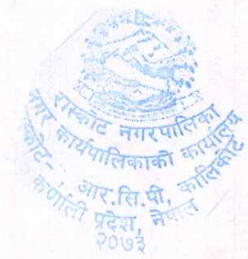 रास्कोट नगरपालिका
नगर कार्यपालिकाको कार्यालय
आर.सि.पी, कालिकोट
कर्णाली प्रदेश, नेपाल
२०७३